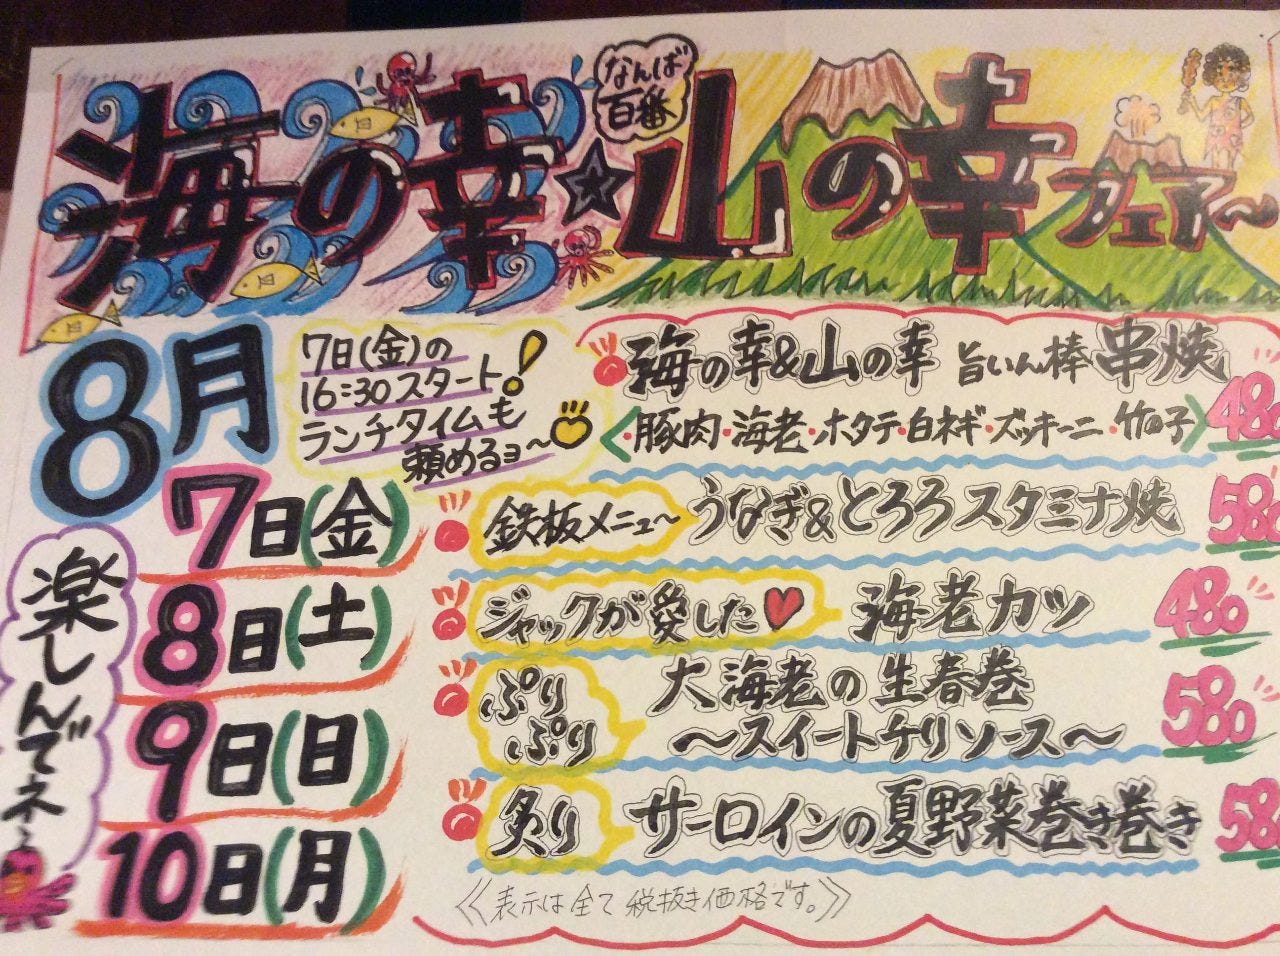 なんば
百番
海の幸★山の幸フェア～
8月
7日(金)の
16:30スタート!
ランチタイムも
頼めるヨ～
7日(金)
8日(土)
9日(日)
10日(月)
楽しんでネ♪
海の幸&山の幸 旨いん棒 串焼 480
<・豚肉・海老・ホタテ・白ネギ・ズッキーニ・竹の子>
鉄板メニュ～ うなぎ&とろろスタミナ焼 580
ジャックが愛した♥ 海老カツ 480
ぷりぷり 大海老の生春巻
～スイートチリソース～ 580
炙り サーロインの夏野菜巻き巻き 58
《表示は全て税抜き価格です。》